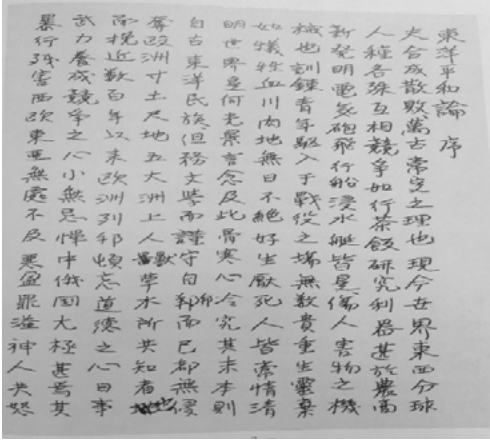 東洋平和論 序
夫合成散敗萬古常定之理也現今世界東西分球
人種各殊互相競争如行茶飯研究利器甚於農商
新発明電気砲飛行船浸水艇皆是傷人害物之機
械也訓鍊青年駆入于戰役之場無数貴重生靈棄
如犠牲血川肉地無日不絶好生厭死人皆常情清
明世界是何光景言念及此骨寒心冷究其末本則
自古東洋民族但務文學而謹守自邦而已都無侵
奪欧洲寸土尺地五大洲上人獣草木所共知者也
而挽近数百年以来欧洲列邦頓忘道徳之心日事
武力養成競争之心小無忌憚中俄国尤極甚焉其
暴行残害西欧東亜無處不及悪盈罪溢神人共怒